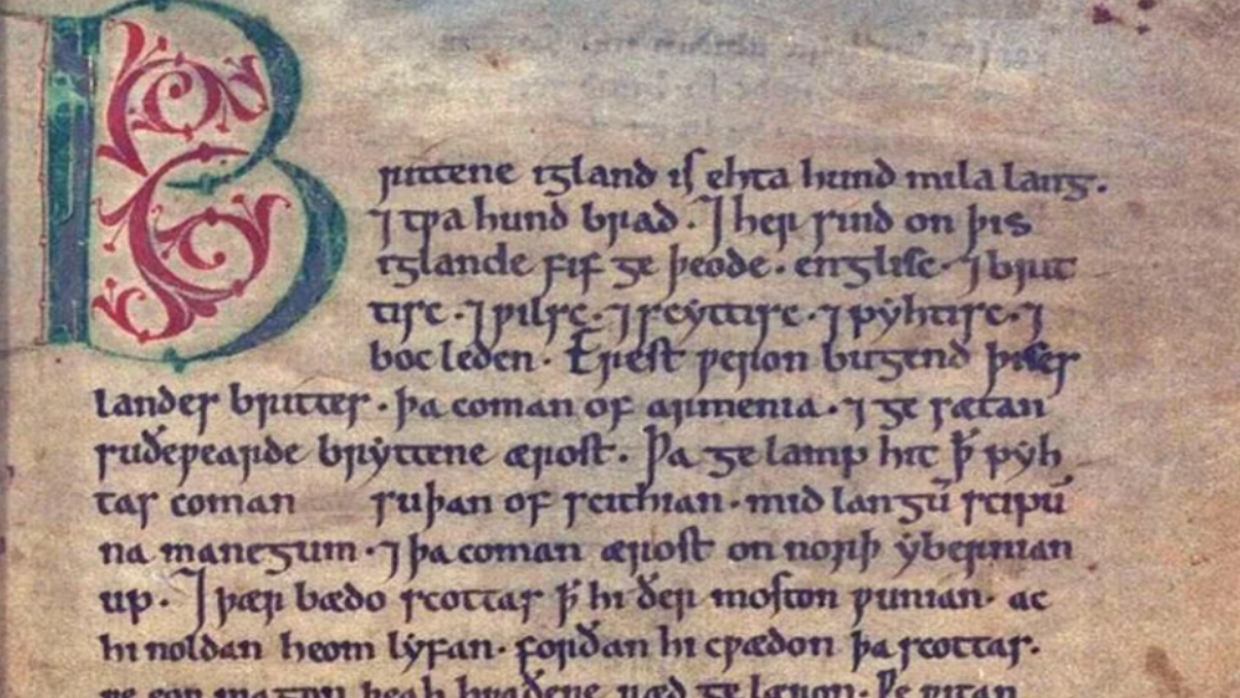 Brittene igland is ehta hund mila lang.
⁊ tƿa hund brad. ⁊ her sind on þis
iglande fif ge þeode. englisc. ⁊ brit
tisc. ⁊ ƿilsc. ⁊ scyttisc. ⁊ pyhtisc. ⁊
boc leden. Erest ƿeron bugend þises
landes brittes. þa coman of armenia. ⁊ ge sætan
suðeƿearde bryttene ærost. Þa ge lamp hit ꝥ pyh
tas coman suþan of scithian. mid langū scipū
na manegum. ⁊ þa coman ærost on norþ ybernian
up. ⁊ þær bædo scottas ꝥ hi ðer moston ƿunian. ac
hi noldan heom lyfan. forðan hi cƿædon þa scottas.
ƿe eoƿ magon þeah hƿaðere ræd ge læron. Ƿe ƿitan